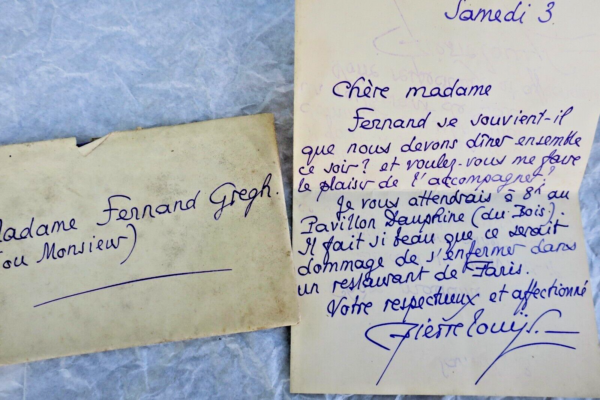 Madame Fernand Gregh.
(ou Monsieur)
Samedi 3
Chère madame
Fernand se souvient-il
que nous devons dîner ensemble
ce soir? et voulez-vous me faire
le plaisir de l'accompagner?
Je vous attendrais à 8h au
Pavillon Dauphine (du Bois).
Il fait si beau que ce serait
dommage de s'enfermer dans
un restaurant de Paris.
Votre respectueux et affectionné
Pierre Louÿs.